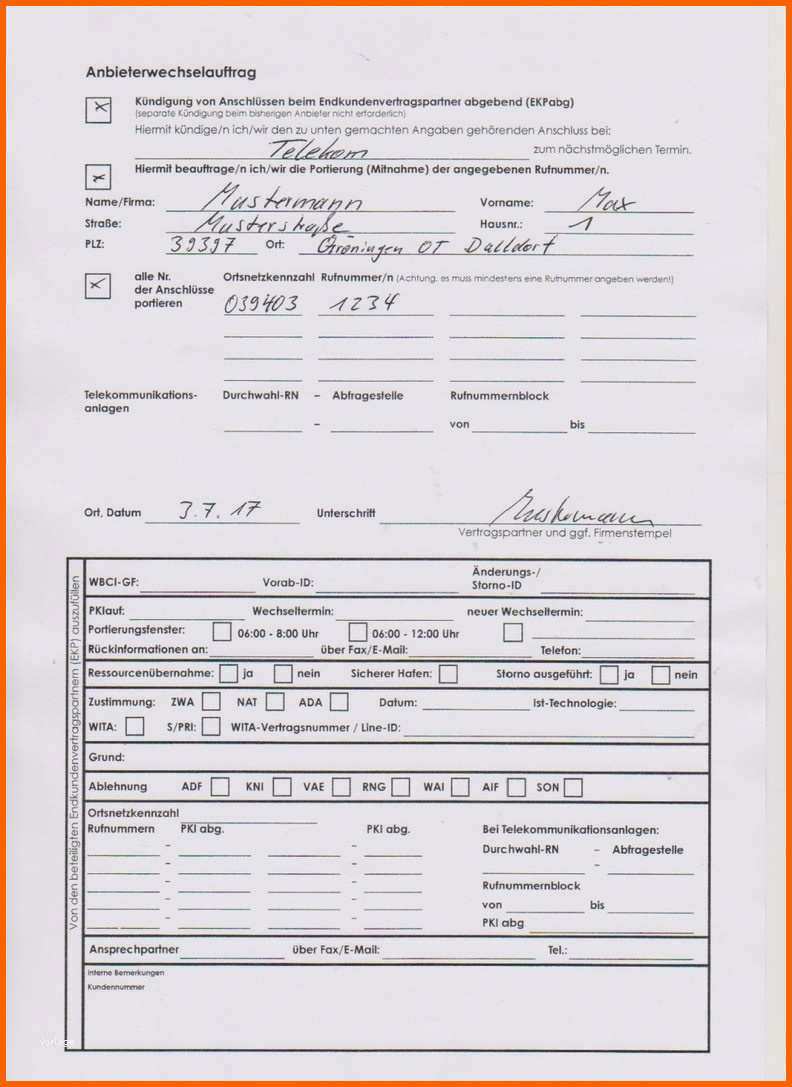 Anbieterwechselauftrag
Kündigung von Anschlüssen beim Endkundenvertragspartner abgebend (EKPabg)
(separate Kündigung beim bisherigen Anbieter nicht erforderlich)
Hiermit kündige/n ich/wir den zu unten gemachten Angaben gehörenden Anschluss bei:
Telekom zum nächstmöglichen Termin.
Hiermit beauftrage/n ich/wir die Portierung (Mitnahme) der angegebenen Rufnummer/n.
Name/Firma: Mustermann Vorname: Max
Straße: Musterstraße Hausnr.: 1
PLZ: 39397 Ort: Gröningen OT Dalldorf
alle Nr. Ortsnetzkennzahl Rufnummer/n (Achtung, es muss mindestens eine Rufnummer angeben werden!)
der Anschlüsse
portieren 039403 1234
Telekommunikations- Durchwahl-RN – Abfragestelle Rufnummernblock
anlagen
– von bis
Ort, Datum 3.7.17 Unterschrift Mustermann
Vertragspartner und ggf. Firmenstempel
Von den beteiligten Endkundenvertragspartnern (EKP) auszufüllen
WBCI-GF: Vorab-ID: Änderungs-/
Storno-ID
PKIauf: Wechseltermin: neuer Wechseltermin:
Portierungsfenster: 06:00 - 8:00 Uhr 06:00 - 12:00 Uhr
Rückinformationen an: über Fax/E-Mail: Telefon:
Ressourcenübernahme: ja nein Sicherer Hafen: Storno ausgeführt: ja nein
Zustimmung: ZWA NAT ADA Datum: Ist-Technologie:
WITA: S/PRI: WITA-Vertragsnummer / Line-ID:
Grund:
Ablehnung ADF KNI VAE RNG WAI AIF SON
Ortsnetzkennzahl
Rufnummern PKI abg. PKI abg. Bei Telekommunikationsanlagen:
Durchwahl-RN – Abfragestelle
Rufnummernblock
von bis
PKI abg
Ansprechpartner über Fax/E-Mail: Tel.:
Interne Bemerkungen
Kundennummer
vorlage